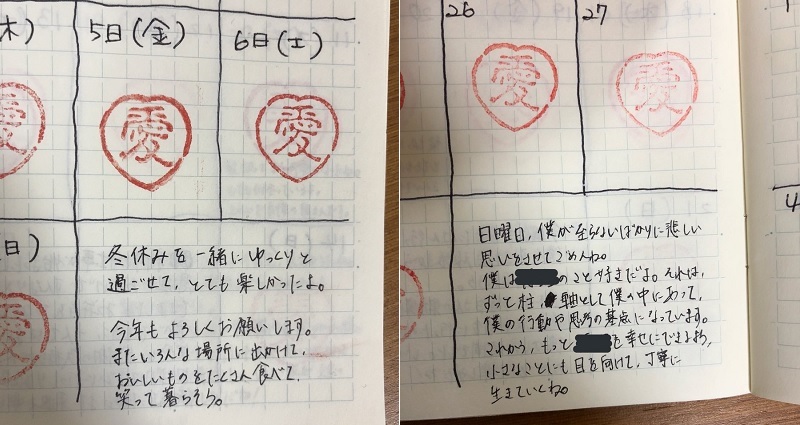 木)
5日(金)
愛
愛
6日(土)
愛
日)
冬休みを一緒にゆっくりと
過ごせて、とても楽しかったよ。
今年もよろしくお願いします。
またいろんな場所に出かけて、
おいしいものをたくさん食べて、
笑って暮らそう。
26
愛
27
愛
日曜日、僕が至らないばかりに悲しい
思いをさせてごめんね。
僕は のことが好きだよ。それは、
ずっと柱、軸として僕の中にあって、
僕の行動や思考の基点になっています。
これから、もっと を幸せにできるよう、
小さなことにも目を向けて、丁寧に
生きていくね。
4